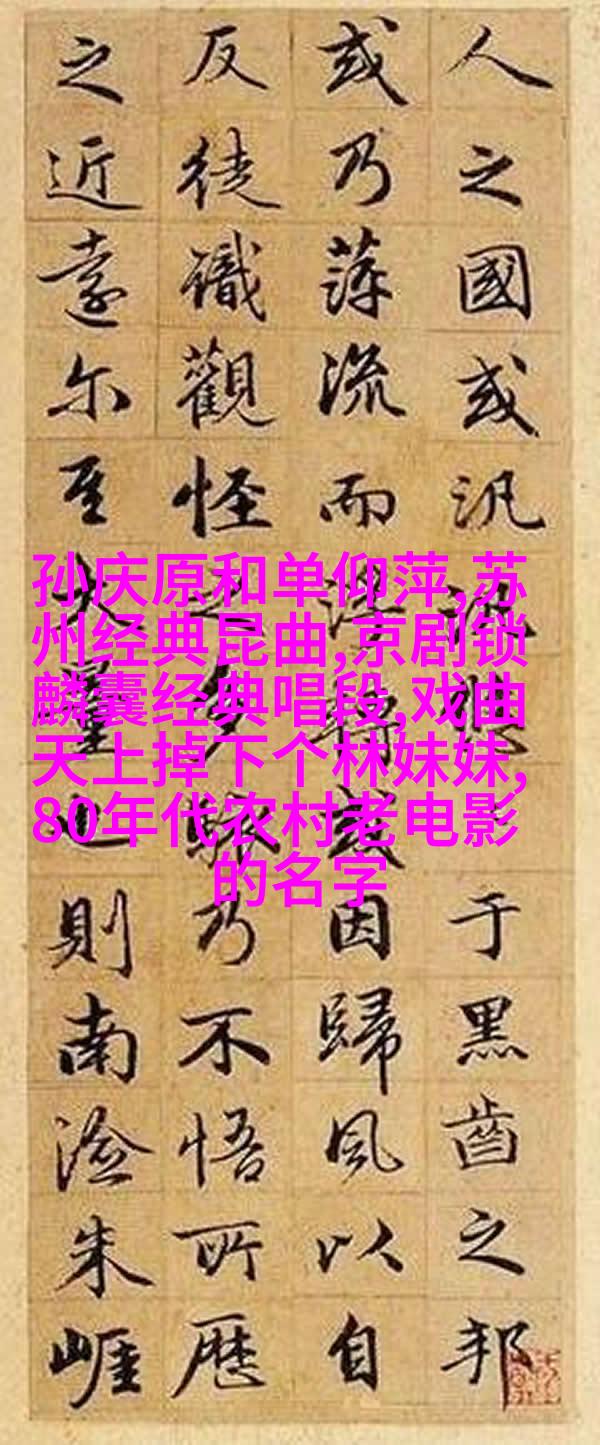 人之國或汎汎悠于黑齒之邦
或乃萍流而浮轉或因歸風以自
反徒識觀怪之多駭乃不悟所歷
之近遠尔至大量也則南澰朱崕
孙庆原和单仰萍,苏
州经典昆曲,京剧锁
麟囊经典唱段,戏曲
天上掉下个林妹妹,
80年代农村老电影
的名字